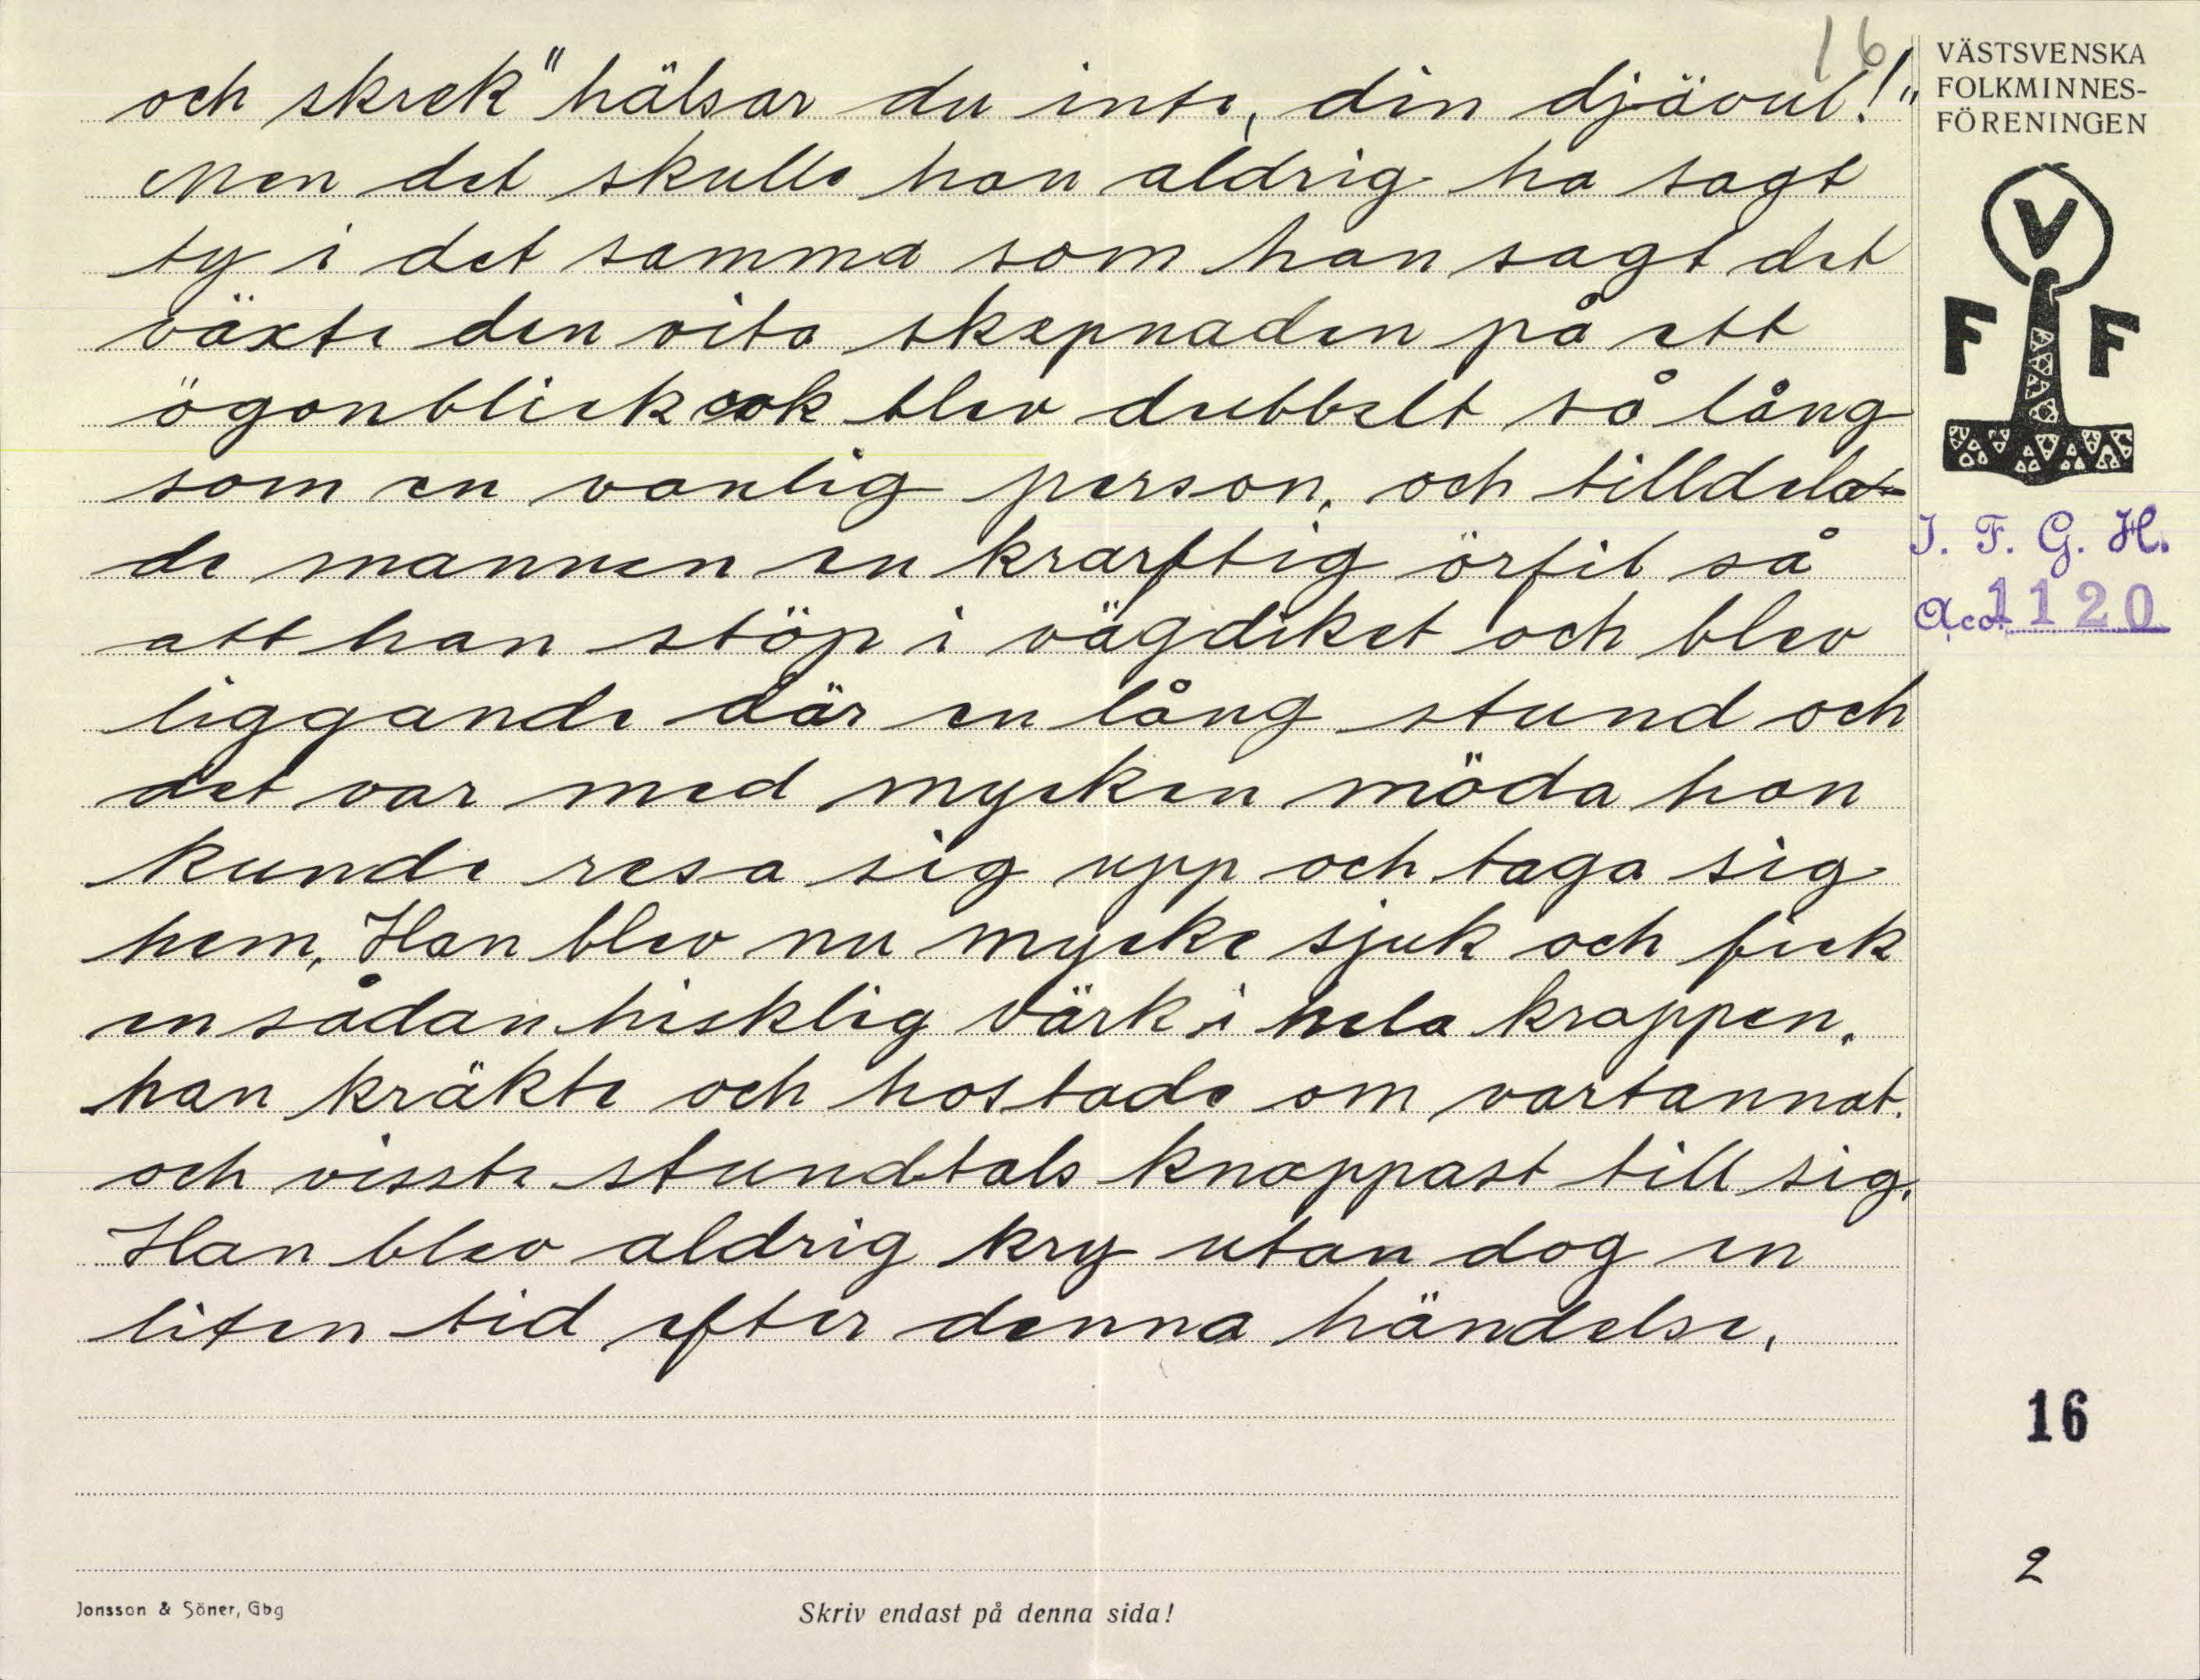 16
och skrek "hälsar du inte, din djävul!"
Men det skulle han aldrig ha sagt
ty i det samma som han sagt det
växte den vita skepnaden på ett
ögonblick ock blev dubbelt så lång
som en vanlig person, och tilldela
de mannen en kraftig örfil så
att han stöp i vägdiket och blev
liggande där en lång stund och
det var med mycken möda han
kunde resa sig upp och taga sig
hem, Han blev nu mycke sjuk och fick
en sådan hisklig värk i hela kroppen,
han kräkte och hostade om vartannat.
och visste stundtals knappast till sig.
Han blev aldrig kry utan dog en
liten tid efter denna händelse,
VÄSTSVENSKA
FOLKMINNES-
FÖRENINGEN
V
F F
I. F. G. H.
Acc. 1120
16
2
Jonsson & Söner, Gbg
Skriv endast på denna sida!